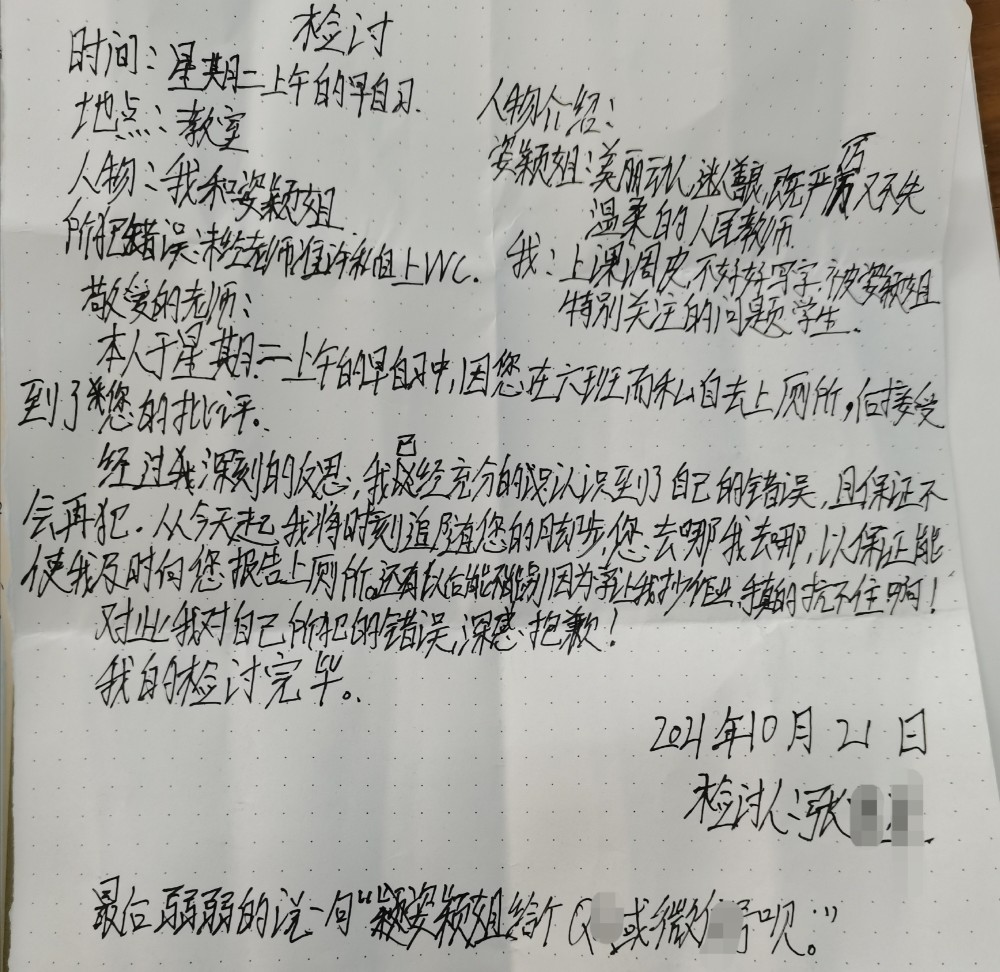 检讨
时间：星期二上午的早自习.
地点：教室
人物：我和姿颖姐
所犯错误：未经老师准许私自上WC.
人物介绍：
姿颖姐：美丽动人,善良,既严厉又不失
温柔的人民教师.
我：上课调皮,不好好写字.被姿颖姐
特别关注的问题学生.
敬爱的老师：
本人于星期二上午的早自习中,因您在六班而私自去上厕所,后接受
到了您的批评。
经过我深刻的反思,我已经充分的认识到了自己的错误,且保证不
会再犯.从今天起我将时刻追随着您的脚步,您去哪我去哪,以保证能
使我及时向您报告上厕所。还有以后能不能别因为字让我抄作业,我真的扛不住啊!
对此我对自己所犯的错误,深感抱歉!
我的检讨完毕。
2021年10月21日
检讨人:张
最后弱弱的说一句“姿颖姐给个Q或微号呗。”